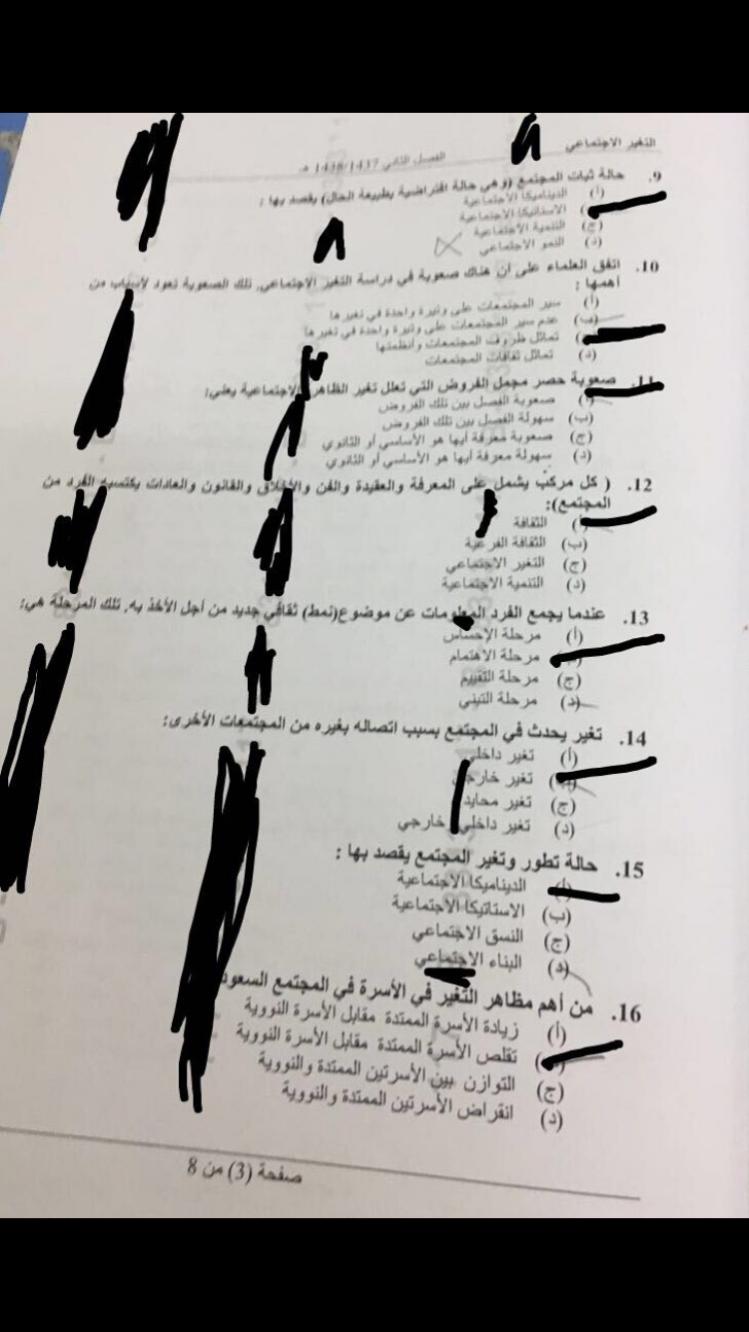 التغير الاجتماعي
الفصل الثاني 1438/1437 هـ
9. حالة ثبات المجتمع (وهي حالة افتراضية بطبيعة الحال) يقصد بها :
(أ) الديناميكا الاجتماعية
الاستاتيكا الاجتماعية
(ج) التنمية الاجتماعية
(د) النمو الاجتماعي
10. اتفق العلماء على أن هناك صعوبة في دراسة التغير الاجتماعي، تلك الصعوبة تعود لأسباب من
أهمها :
(أ) سير المجتمعات على وتيرة واحدة في تغيرها
(ب) عدم سير المجتمعات على وتيرة واحدة في تغيرها
تماثل ظروف المجتمعات وأنظمتها
(د) تماثل ثقافات المجتمعات
11. صعوبة حصر مجمل الفروض التي تعلل تغير الظاهرة الاجتماعية يعني:
(أ) صعوبة الفصل بين تلك الفروض
(ب) سهولة الفصل بين تلك الفروض
(ج) صعوبة معرفة أيها هو الأساسي أو الثانوي
(د) سهولة معرفة أيها هو الأساسي أو الثانوي
12. ( كل مركب يشمل على المعرفة والعقيدة والفن والأخلاق والقانون والعادات يكتسبه الفرد من
المجتمع):
(أ) الثقافة
(ب) الثقافة الفرعية
(ج) التغير الاجتماعي
(د) التنمية الاجتماعية
13. عندما يجمع الفرد المعلومات عن موضوع(نمط) ثقافي جديد من أجل الأخذ به، تلك المرحلة هي:
(أ) مرحلة الإحساس
مرحلة الاهتمام
(ج) مرحلة التقييم
(د) مرحلة التبني
14. تغير يحدث في المجتمع بسبب اتصاله بغيره من المجتمعات الأخرى:
(أ) تغير داخلي
تغير خارجي
(ج) تغير محايد
(د) تغير داخلي خارجي
15. حالة تطور وتغير المجتمع يقصد بها :
(أ) الديناميكا الاجتماعية
(ب) الاستاتيكا الاجتماعية
(ج) النسق الاجتماعي
(د) البناء الاجتماعي
16. من أهم مظاهر التغير في الأسرة في المجتمع السعود
(أ) زيادة الأسرة الممتدة مقابل الأسرة النووية
تقلص الأسرة الممتدة مقابل الأسرة النووية
(ج) التوازن بين الأسرتين الممتدة والنووية
(د) انقراض الأسرتين الممتدة والنووية
صفحة (3) من 8